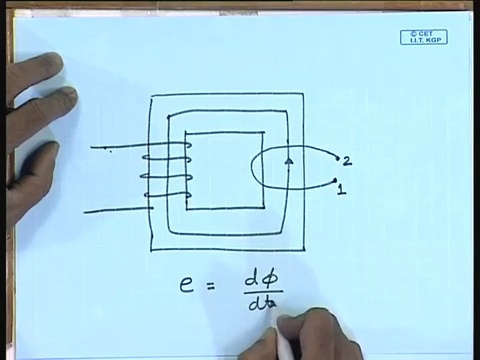 © CET
I.I.T. KGP
2
1
e = dϕ
dt